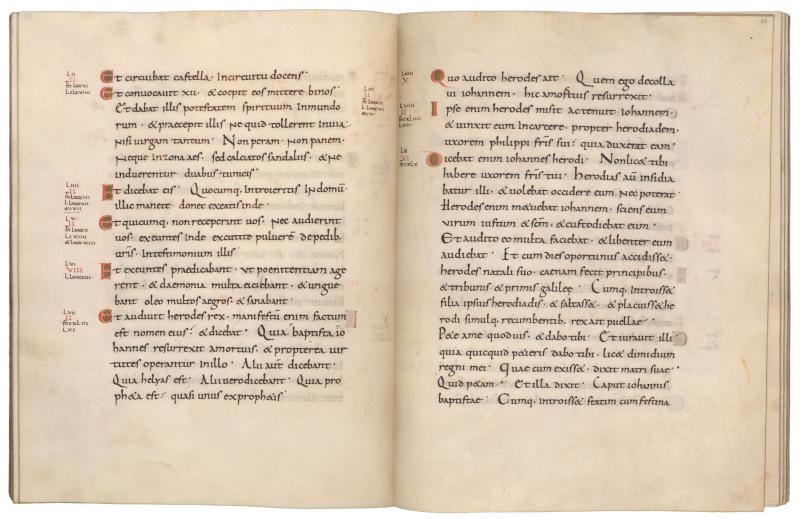 Et circuibat castella · Incircuitu docens ·
Et conuocauit xii · & coepit eos mittere binos ·
Et dabat illis potestatem spirituum inmundo
rum · & praecepit illis Ne quid tollerent Inuia ·
Nisi uirgam tantum · Non peram · Non panem ·
Neque Inzona aes · sed calciatos sandaliis · & Ne
induerentur duabus tunicis ·
Et dicebat eis · Quocumq · Introieritis Indomū ·
illic manete donec exeatis inde ·
Et quicumq · non receperint uos · Nec audierint
uos · exeuntes inde excutite puluerē depedib ·
uris · Intestimonium illis ·
Et exeuntes praedicabant · ut poenitentiam age
rent · & daemonia multa eiciebant · & ungue
bant oleo multos aegros & sanabant ·
Et audiuit herodes rex · manifestū enim factum
est nomen eius · & dicebat · Quia baptista io
hannes resurrexit amortuis · & propterea uir
tutes operantur inillo · Alii aut dicebant ·
Quia helyas est · Alii uero dicebant · Quia pro
ph&a est · quasi unus ex proph&is ·
Quo audito herodes ait · Quem ego decolla
ui iohannem · hic amortuis resurrexit ·
Ipse enim herodes misit ac tenuit iohannem ·
& uinxit eum Incarcere · propter herodiadem ·
uxorem philippi fris sui · quia duxerat eam ·
Dicebat enim iohannes herodi · Nonlic& tibi
habere uxorem fris tui · Herodias aū insidia
batur illi · & uolebat occidere eum Nec poterat ·
Herodes enim m&uebat iohannem · sciens eum
uirum iustum & scm · & custodiebat eum ·
Et audito eo multa faciebat · & libenter eum
audiebat · Et cum dies oportunus accidiss& ·
herodes natali suo · caenam fecit principibus ·
& tribunis & primis galileę · Cumq · introiss&
filia ipsius herodiadis · & saltass& · & placuiss& he
rodi simulq · recumbentib · rex ait puellae ·
P&e ame quoduis · & dabo tibi · Et iurauit illi ·
quia quicquid p&ieris dabo tibi · lic& dimidium
regni mei · Quae cum exiss& · dixit matri suae ·
Quid p&am · Et illa dixit · Caput iohannis
baptistae · Cumq · introiss& statim cum festina